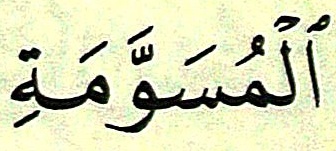 ٱلۡمُسَوَّمَةِ